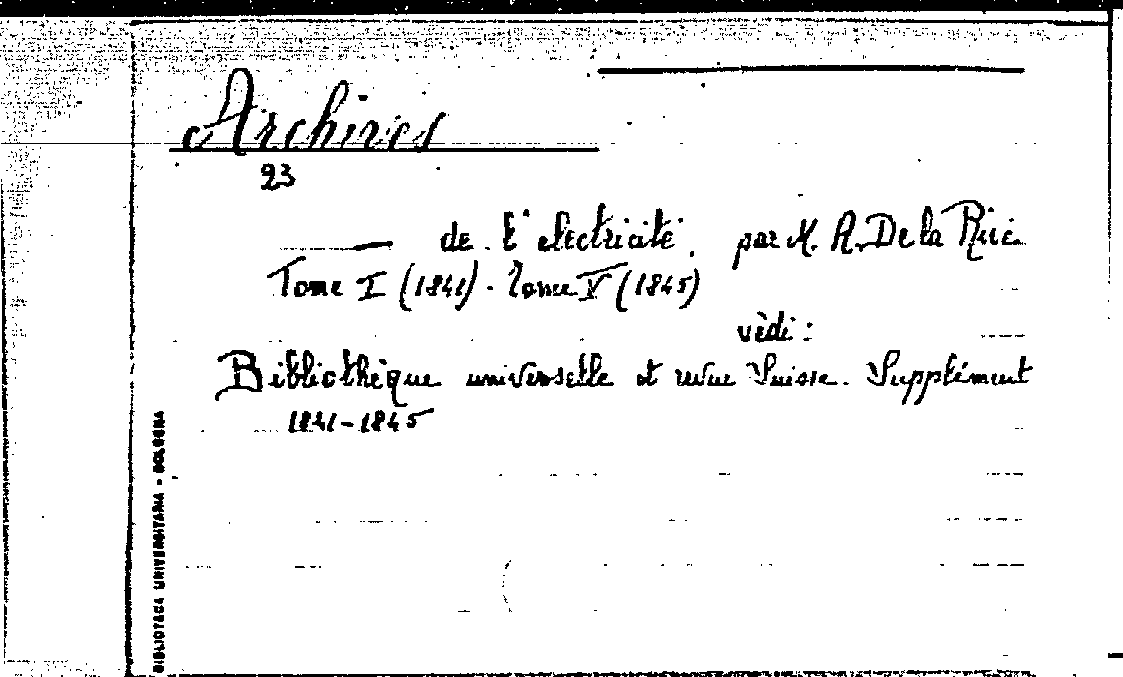 Archives
23
— de l'électricité, par M. A. De la Rive
Tome I (1841) - Tome V (1845)
vedi:
Bibliothèque universelle et revue Suisse. Supplément
1841-1845
BIBLIOTECA UNIVERSITARIA - BOLOGNA